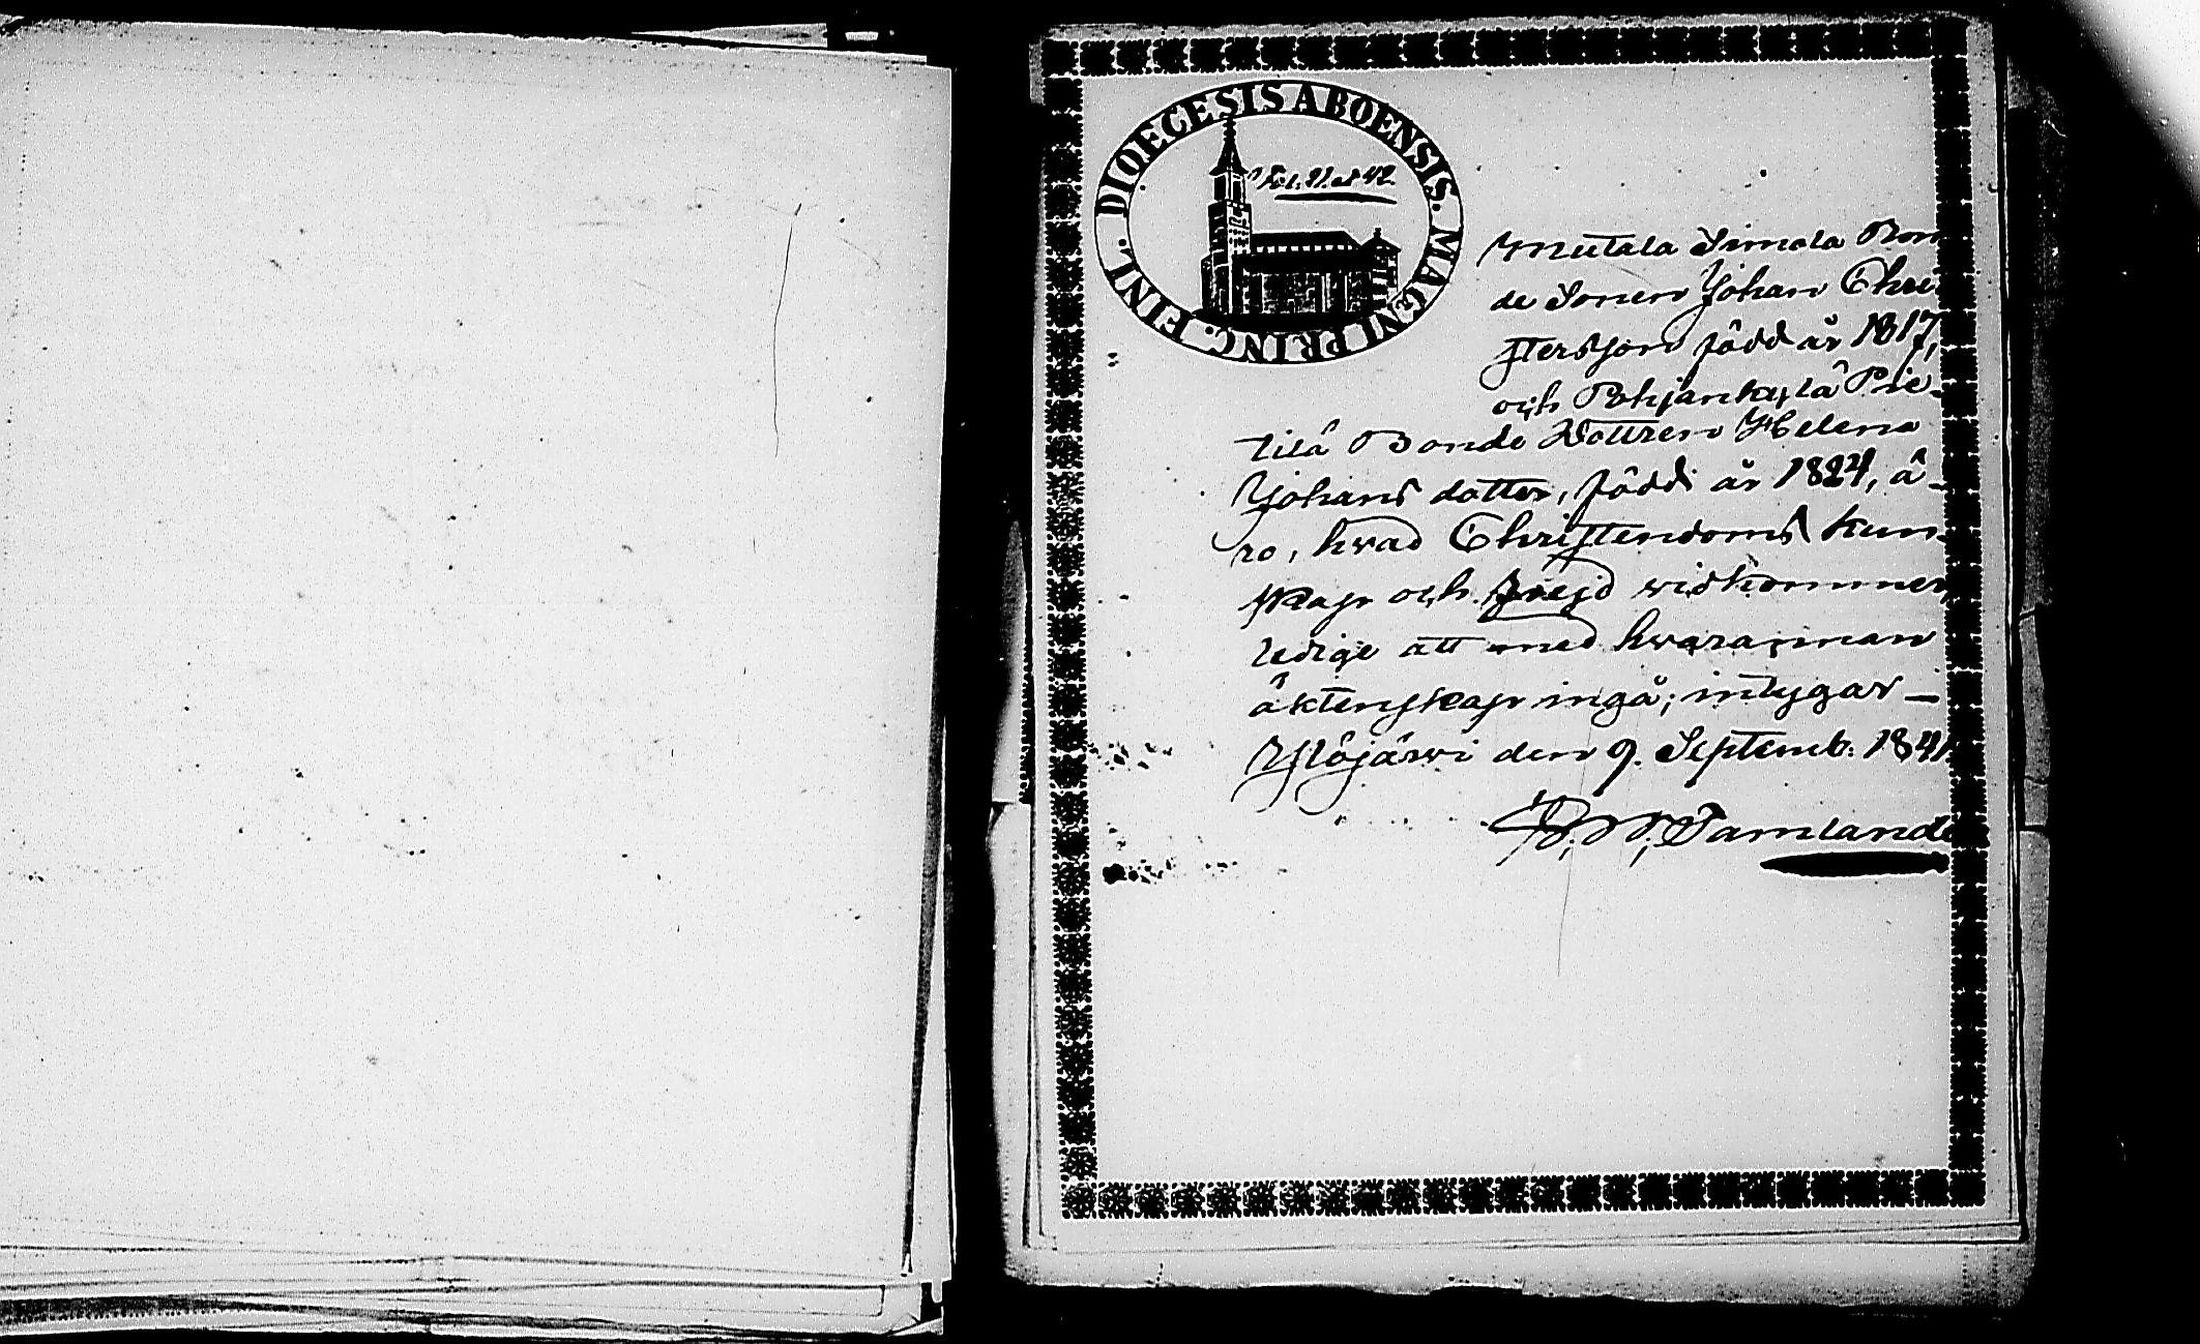 DIOECESIS ABOENSIS. MAGNI PRINC. FINL.
Fol. 21. et 42.
Mutala Simola Bon
de Sonen Johan Chri
stersson född år 1817,
och Pohjankylä Pie-
tilä Bonde Dottren Helena
Johans dotter, född år 1824, ä-
ro, hvad Christendoms kun-
skap och frejd widkommer,
ledige att med hvarannan
äktenskap ingå; intygar —
Ylöjärwi den 9. Septemb. 1841
Tamlande